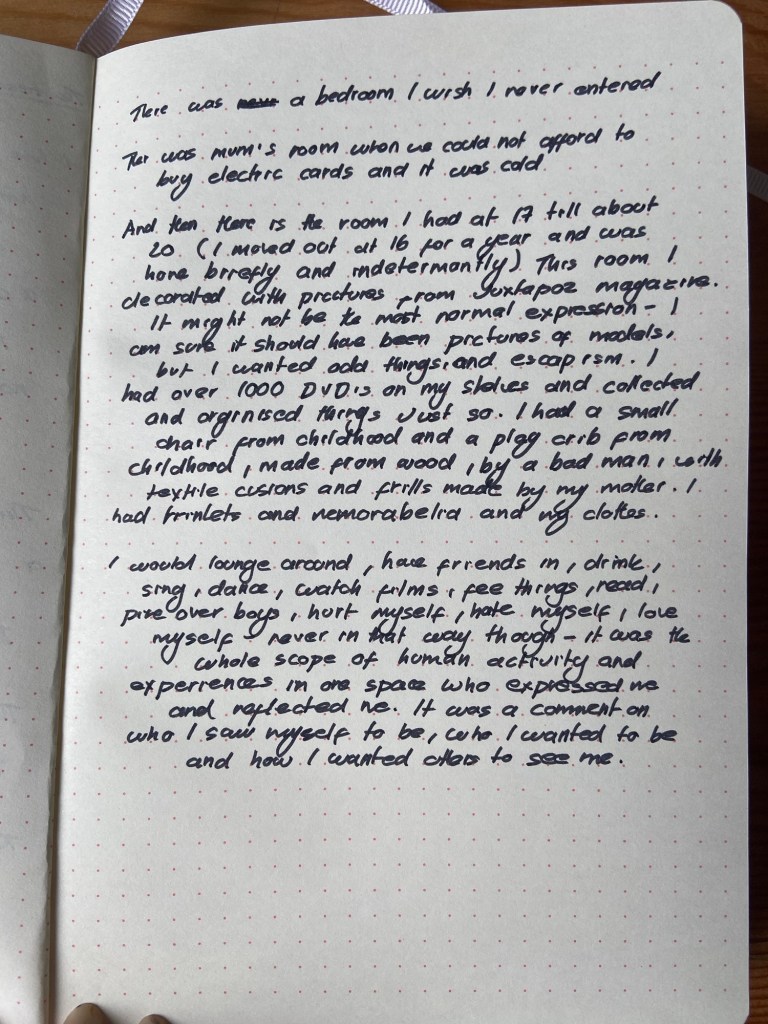 There was a bedroom I wish I never entered
Ther was mum's room when we could not afford to
buy electric cards and it was cold
And then there is the room I had at 17 till about
20 (I moved out at 16 for a year and was
home briefly and indetermantly) This room I
decorated with pictures from Juxtapoz magazine.
It might not be the most normal expression - I
am sure it should have been pictures of models,
but I wanted odd things, and escapism. I
had over 1000 DVD's on my shelves and collected
and orginised things just so. I had a small
chair from childhood and a play crib from
childhood, made from wood, by a bad man, with
textile cusions and frills made by my mother. I
had trinkets and memorabelia and my clothes.
I would lounge around, have friends in, drink,
sing, dance, watch films, fee things, read,
pine over boys, hurt myself, hate myself, love
myself - never in that way though - it was the
whole scope of human activity and
experiences in one space who expressed me
and reflected me. It was a comment on
who I saw myself to be, who I wanted to be
and how I wanted others to see me.